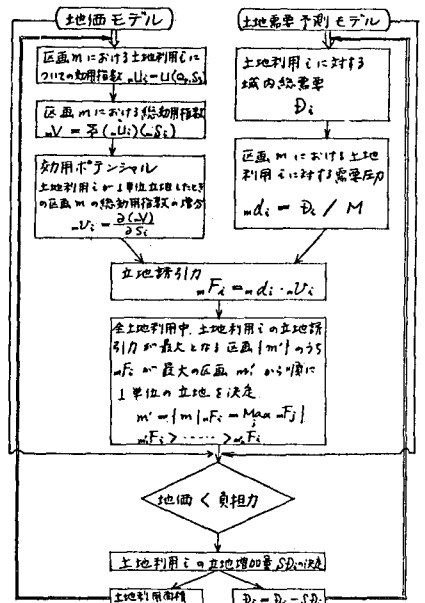 地価モデル
土地需要予測モデル
区画mにおける土地利用iに
ついての効用指数 mUi=U(a,Si)
区画mにおける総効用指数
mV = Σ(mUi)(mSi)
効用ポテンシャル
土地利用iが1単位立地したとき
の区画mの総効用指数の増分
mVi = ∂(mV)/∂Si
土地利用iに対する
域内総需要
Di
区画mにおける土地
利用iに対する需要圧力
mdi = Di / M
立地誘引力
mFi = mdi・mVi
全土地利用中、土地利用iの立地誘
引力が最大となる区画{m'}のうち
mFiが最大の区画m'から順に
1単位の立地を決定
m' = {m | mFi = Max mFj}
j
Fi > ‥‥‥ > Fi
地価 < 負担力
土地利用iの立地増加量 SDiの決定
土地利用面積
Di = Di - SDi